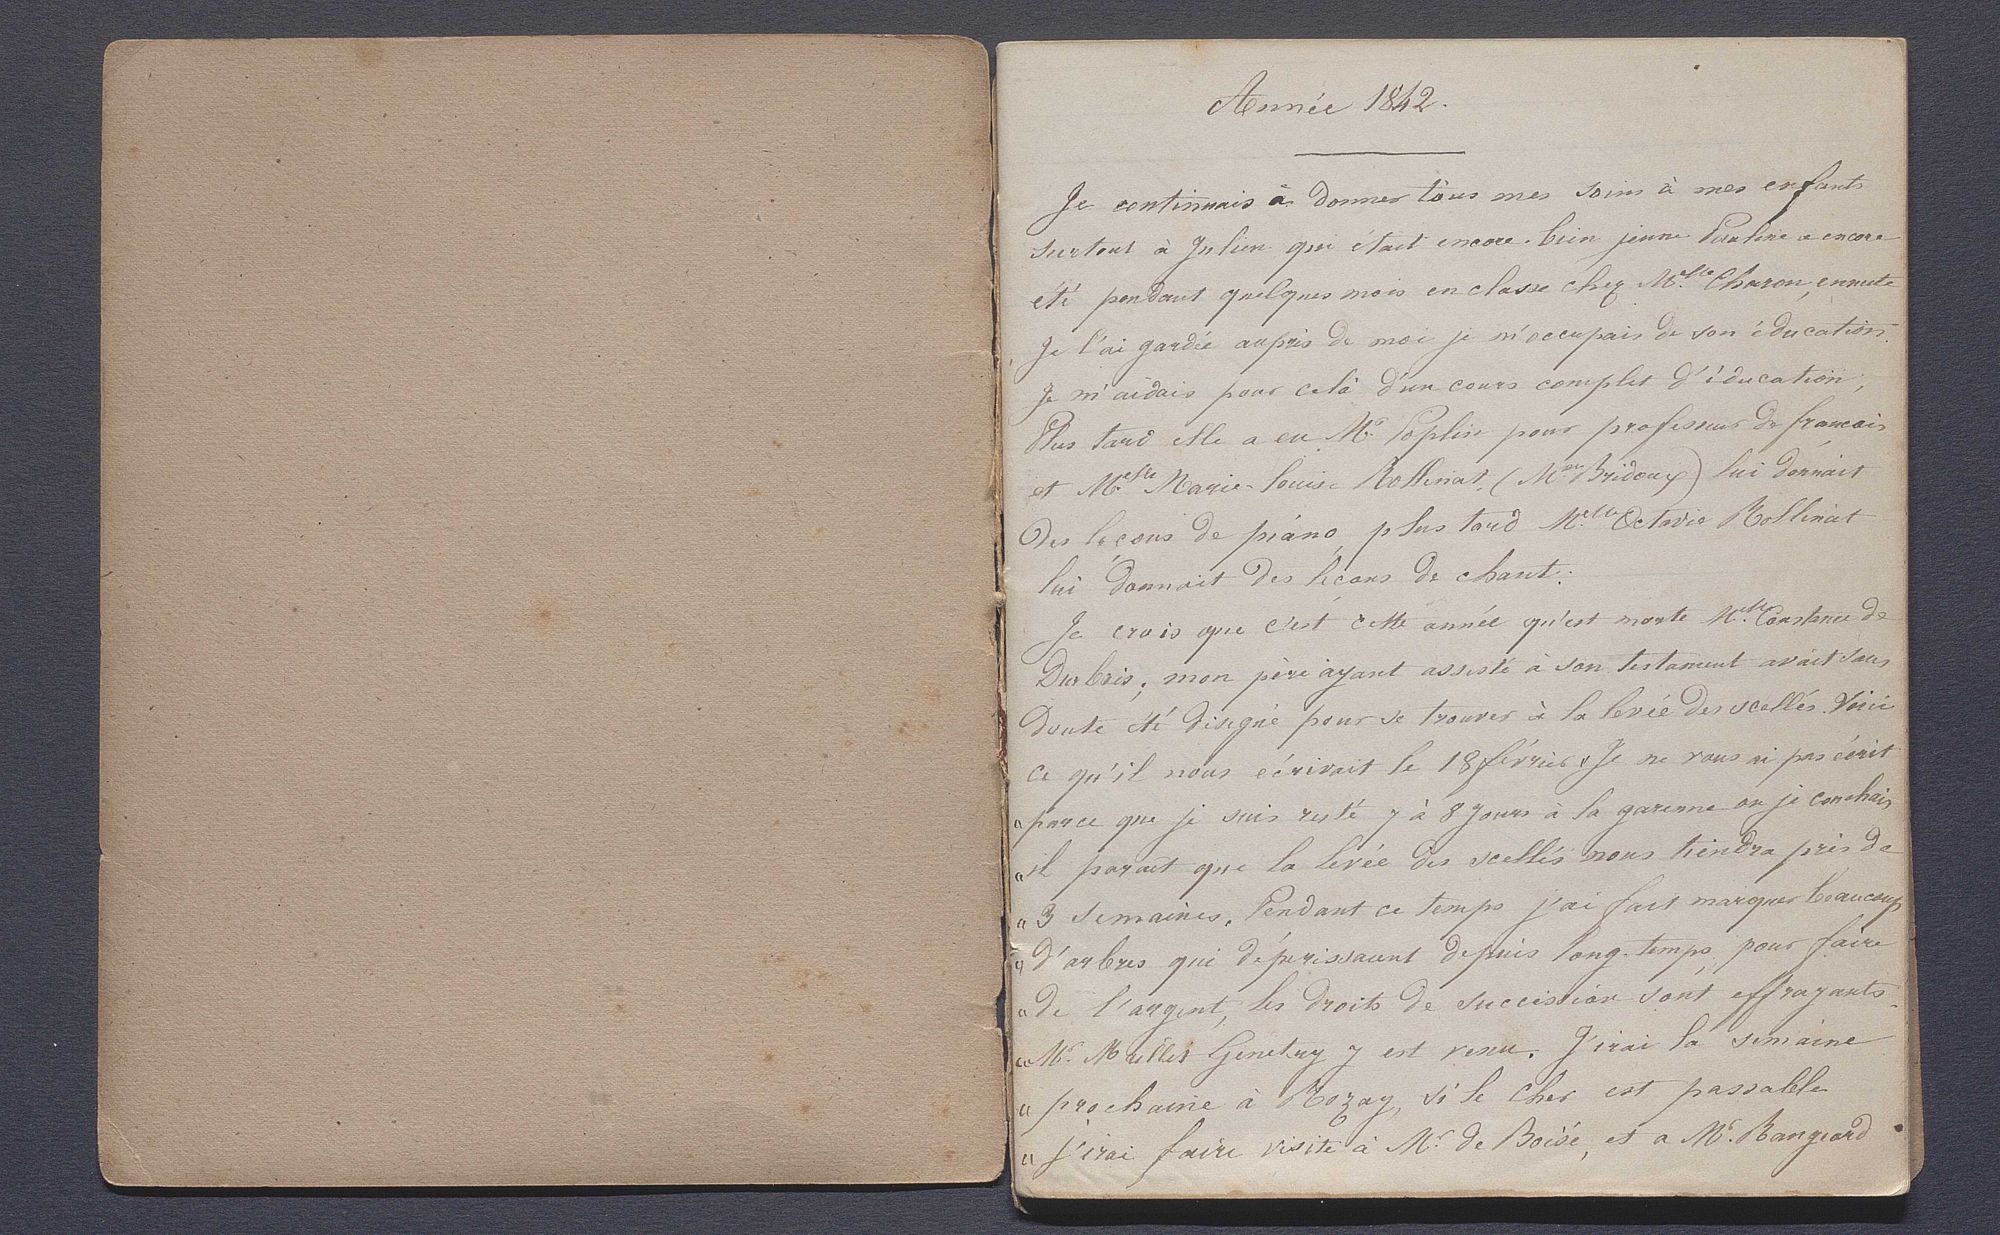 Année 1842.
Je continuais à donner tous mes soins à mes enfants
surtout à Julien qui était encore bien jeune Pauline a encore
été pendant quelques mois en classe chez M.elle Charon, ensuite
Je l'ai gardée auprès de moi je m'occupais de son éducation.
Je m'aidais pour celà d'un cours complet d'éducation,
Plus tard elle a eu Mr Poplin pour professeur de francais
et M.elle Marie-Louise Rollinat, (Mme Bridoux) lui donnait
des lecons de piano, plus tard M.elle Octavie Rollinat
lui donnait des lecons de chant.
Je crois que c'est cette année qu'est morte M.elle Constance de
; mon père ayant assisté à son testament avait sans
doute été désigné pour se trouver à la levée des scellés. Voici
ce qu'il nous écrivait le 18 février « Je ne vous ai pas écrit
« parce que je suis resté 7 à 8 jours à la garenne ou je couchais
« il parait que la levée des scellés nous tiendra près de
« 3 semaines. Pendant ce temps j'ai fait marquer beaucoup
« d'arbres qui dépérissaient depuis long-temps, pour faire
« de l'argent, les droits de succession sont effrayants.
« Mr. Genetry y est venu. J'irai la semaine
« prochaine à Rozay, si le Cher est passable
« j'irai faire visite à Mr. de Boisé, et a Mr. Rangeard